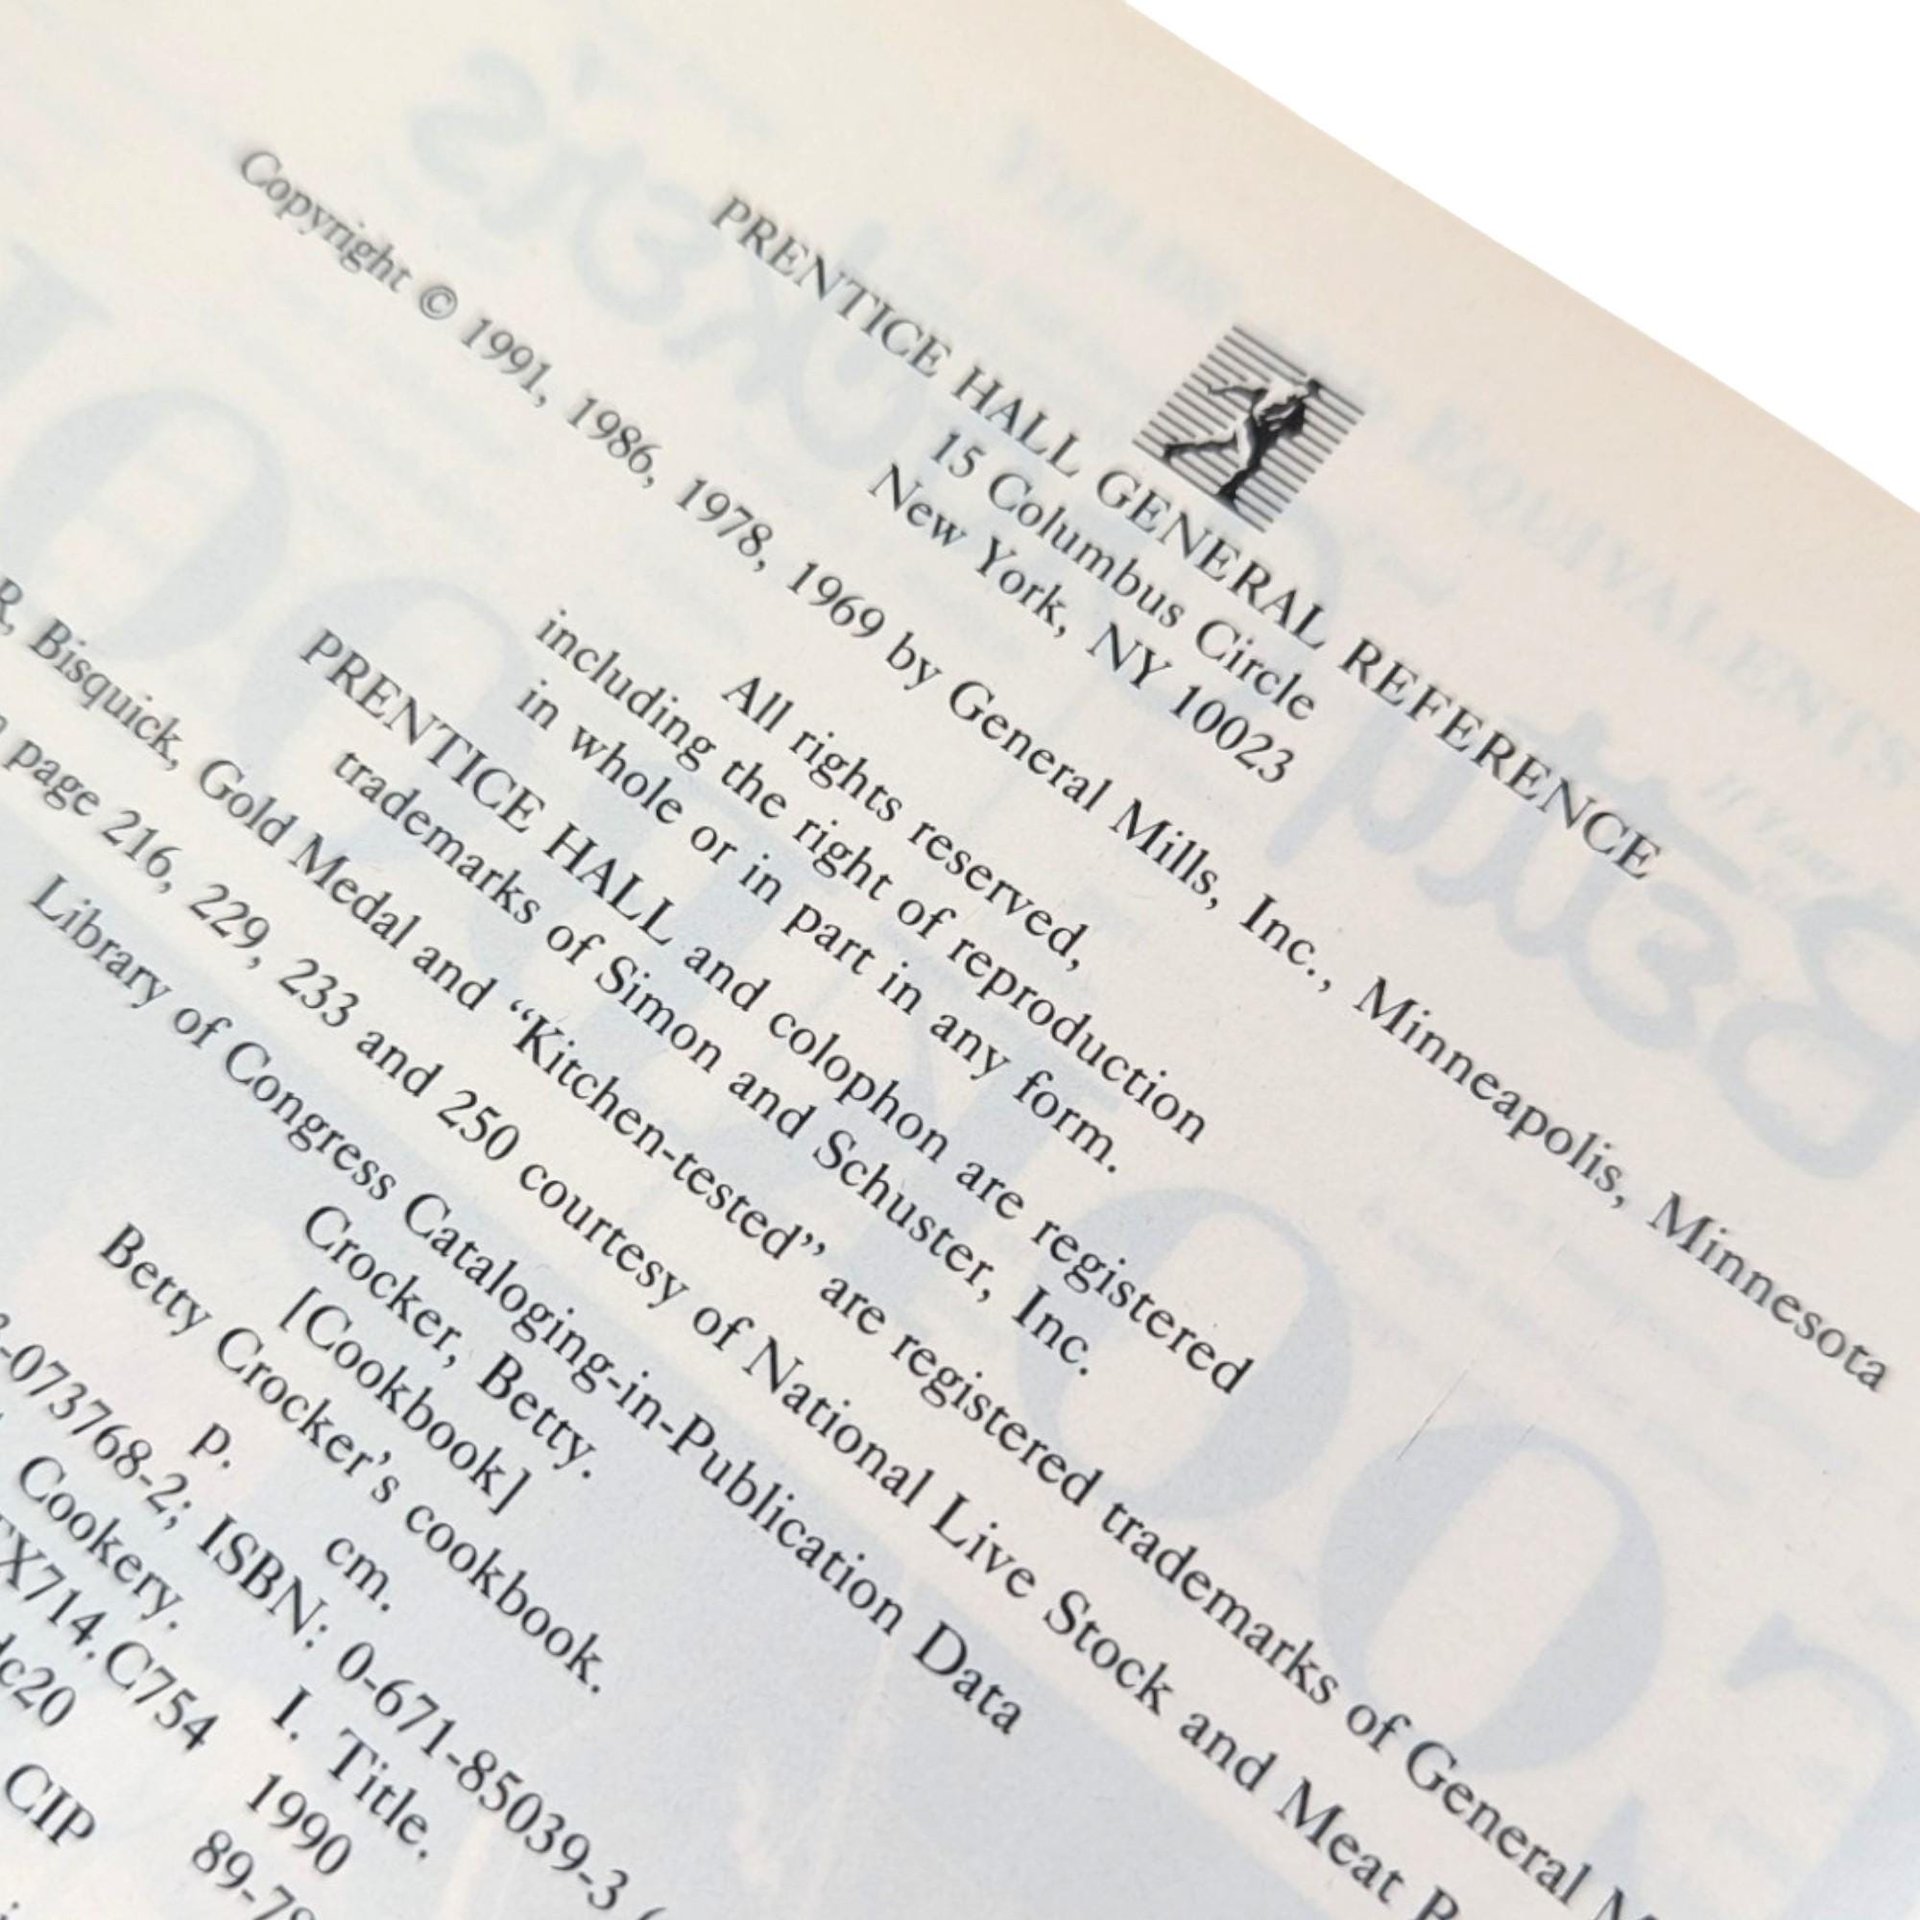 PRENTICE HALL GENERAL REFERENCE
15 Columbus Circle
New York, NY 10023
Copyright © 1991, 1986, 1978, 1969 by General Mills, Inc., Minneapolis, Minnesota
All rights reserved,
including the right of reproduction
in whole or in part in any form.
PRENTICE HALL and colophon are registered
trademarks of Simon and Schuster, Inc.
R, Bisquick, Gold Medal and “Kitchen-tested” are registered trademarks of General M
page 216, 229, 233 and 250 courtesy of National Live Stock and Meat B
Library of Congress Cataloging-in-Publication Data
Crocker, Betty.
[Cookbook]
Betty Crocker's cookbook.
p. cm.
-073768-2; ISBN: 0-671-85039-3 (
Cookery. I. Title.
TX714.C754 1990
dc20 89-78
CIP